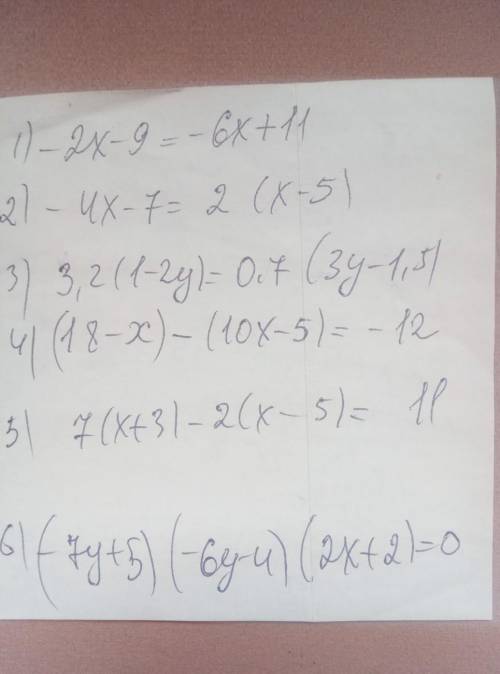 1) -2x-9=-6x+11
2) -4x-7= 2 (x-5)
3) 3,2(1-2y)=0.7 (3y-1,5)
4) (18-x)-(10x-5)=-12
5) 7(x+3)-2(x-5)= 11
6) (-7y+5)(-6y-4)(2x+2)=0